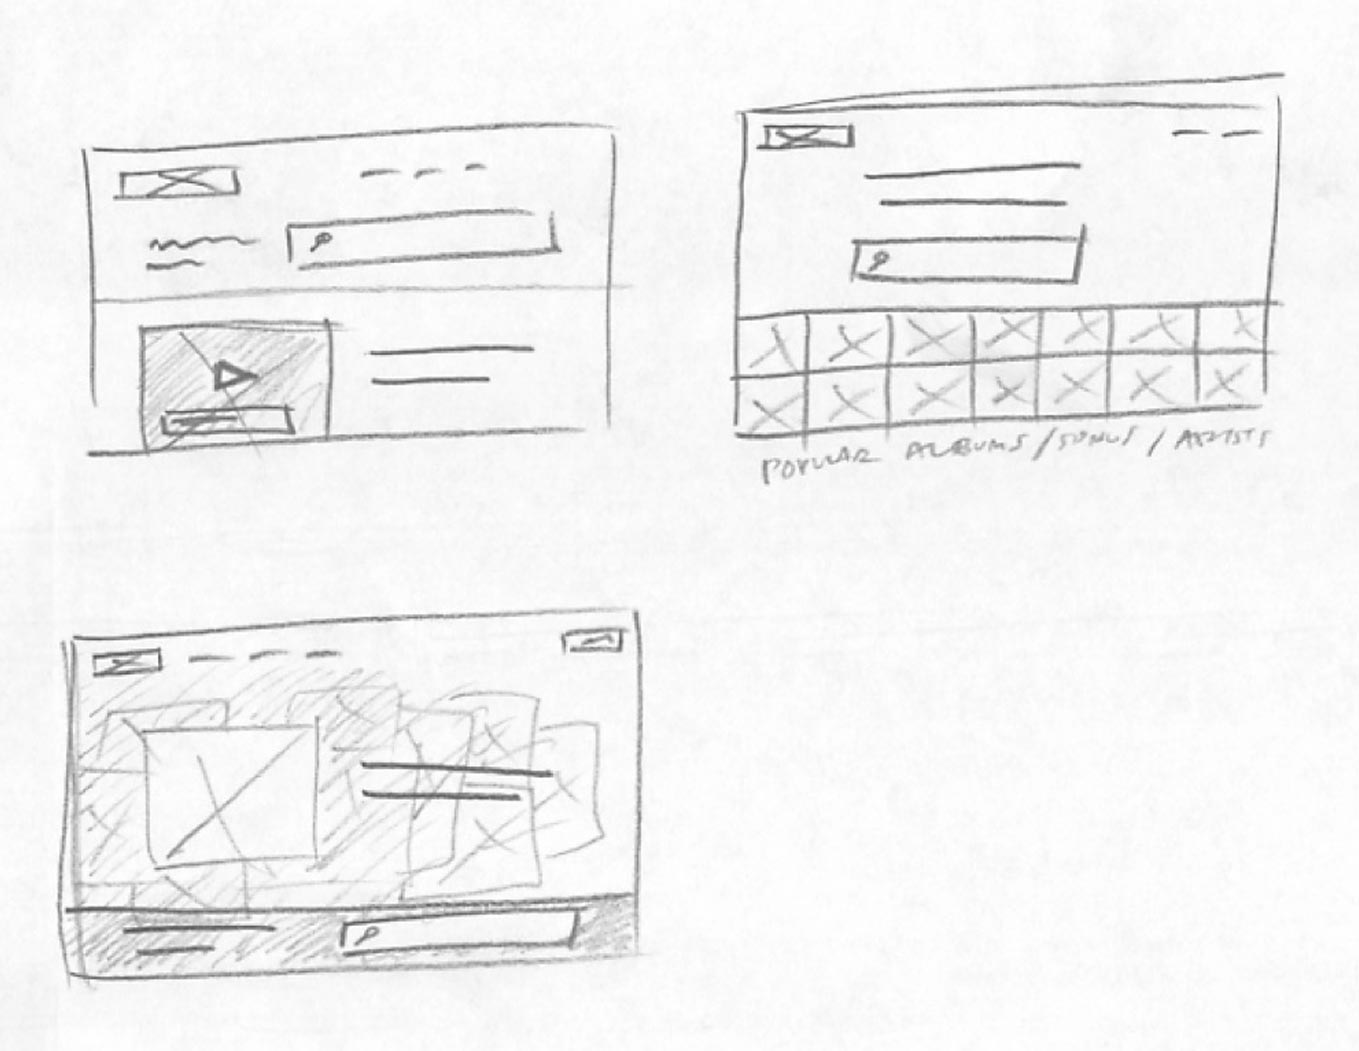 POPULAR ALBUMS / SONGS / ARTISTS